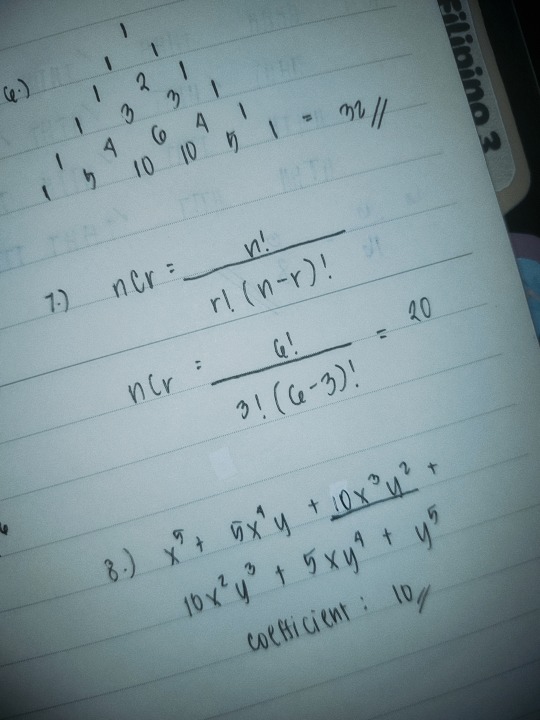 6.)
1
1 1
1 2 1
1 3 3 1
1 4 6 4 1
1 5 10 10 5 1 = 32//
7.) nCr = n! / r! (n-r)!
nCr = 6! / 3! (6-3)! = 20
8.) x⁵ + 5x⁴y + 10x³y² +
10x²y³ + 5xy⁴ + y⁵
coefficient: 10//
Filipino 3